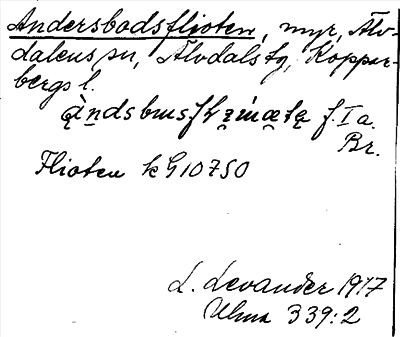 Andersbodsflioten, myr, Älv-
dalens sn, Älvdals tg, Koppar-
bergs l.
f. I a.
Br.
Flioten k G10750
L. Levander 1917
Ulma 339:2